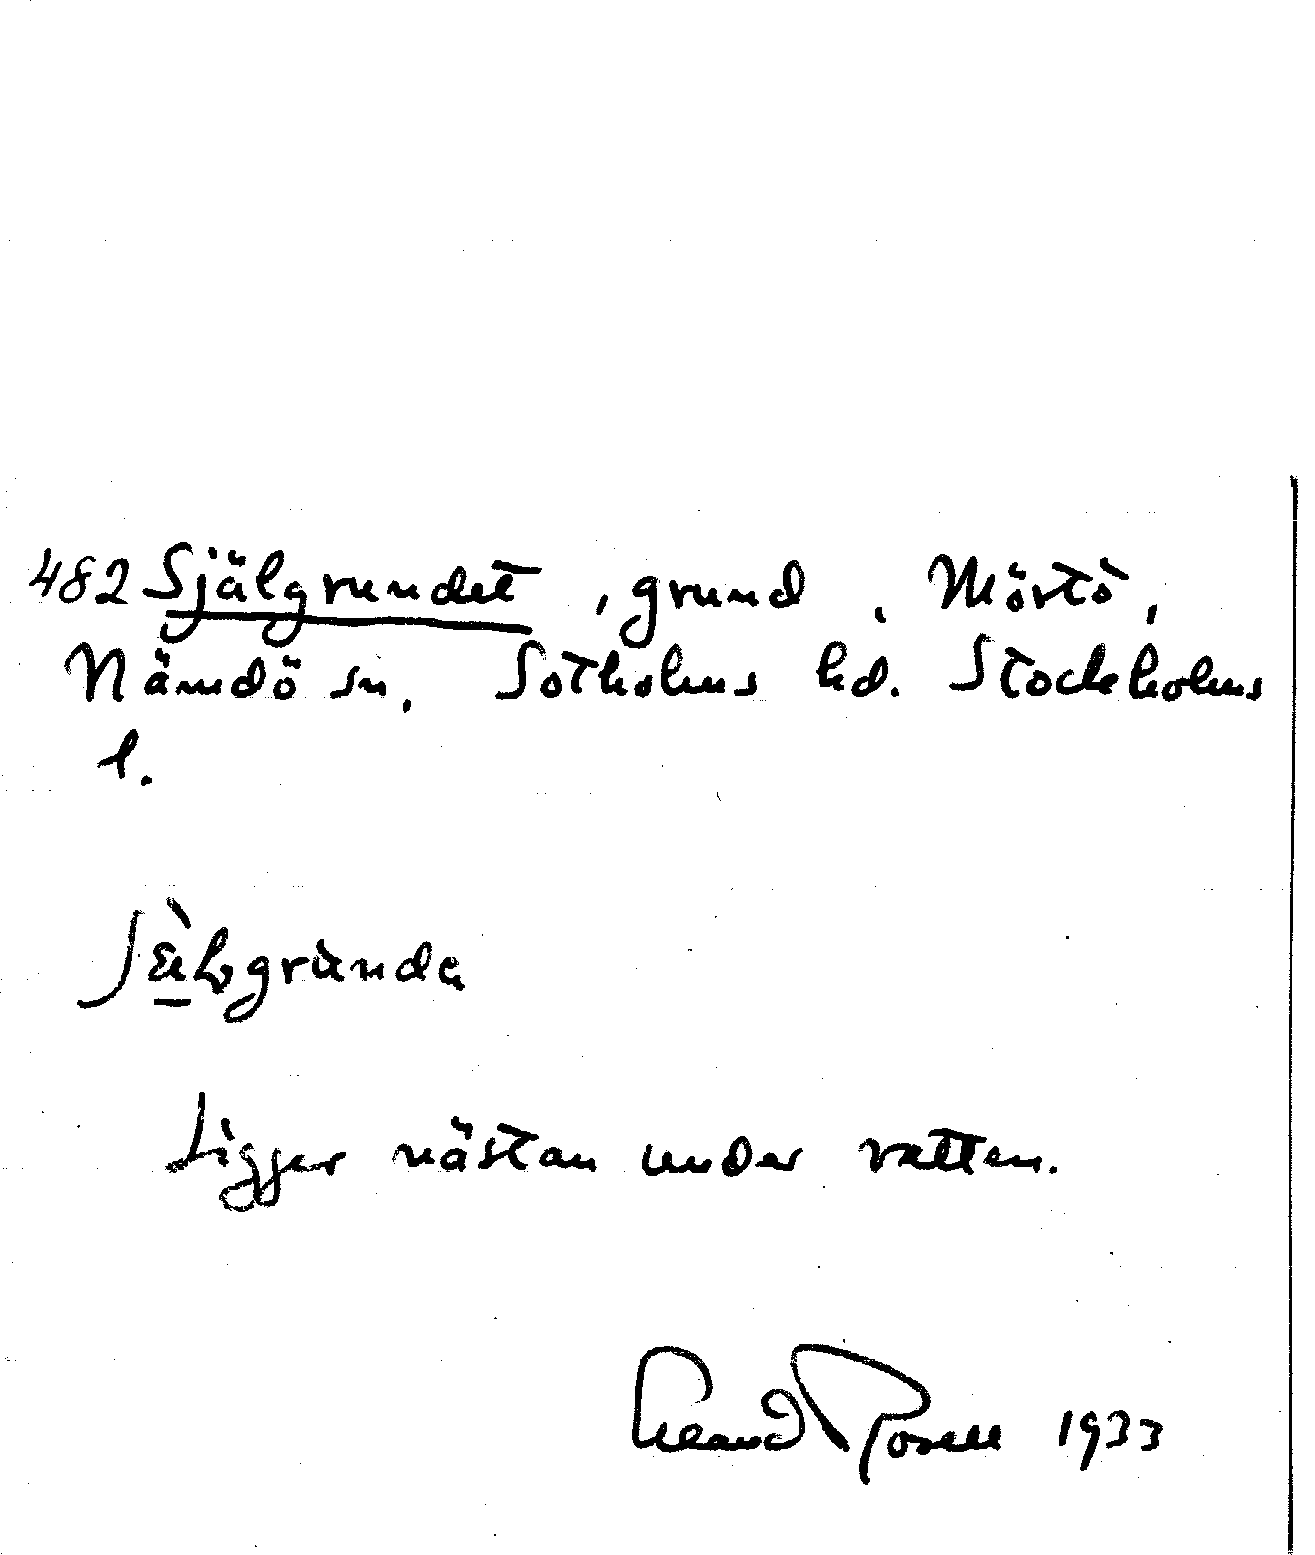 482 Själgrundet, grund, Mörtö,
Nämdö sn. Sotholms hd. Stockholms
l.
Ligger nästan under vatten.
Erland Rosell 1933